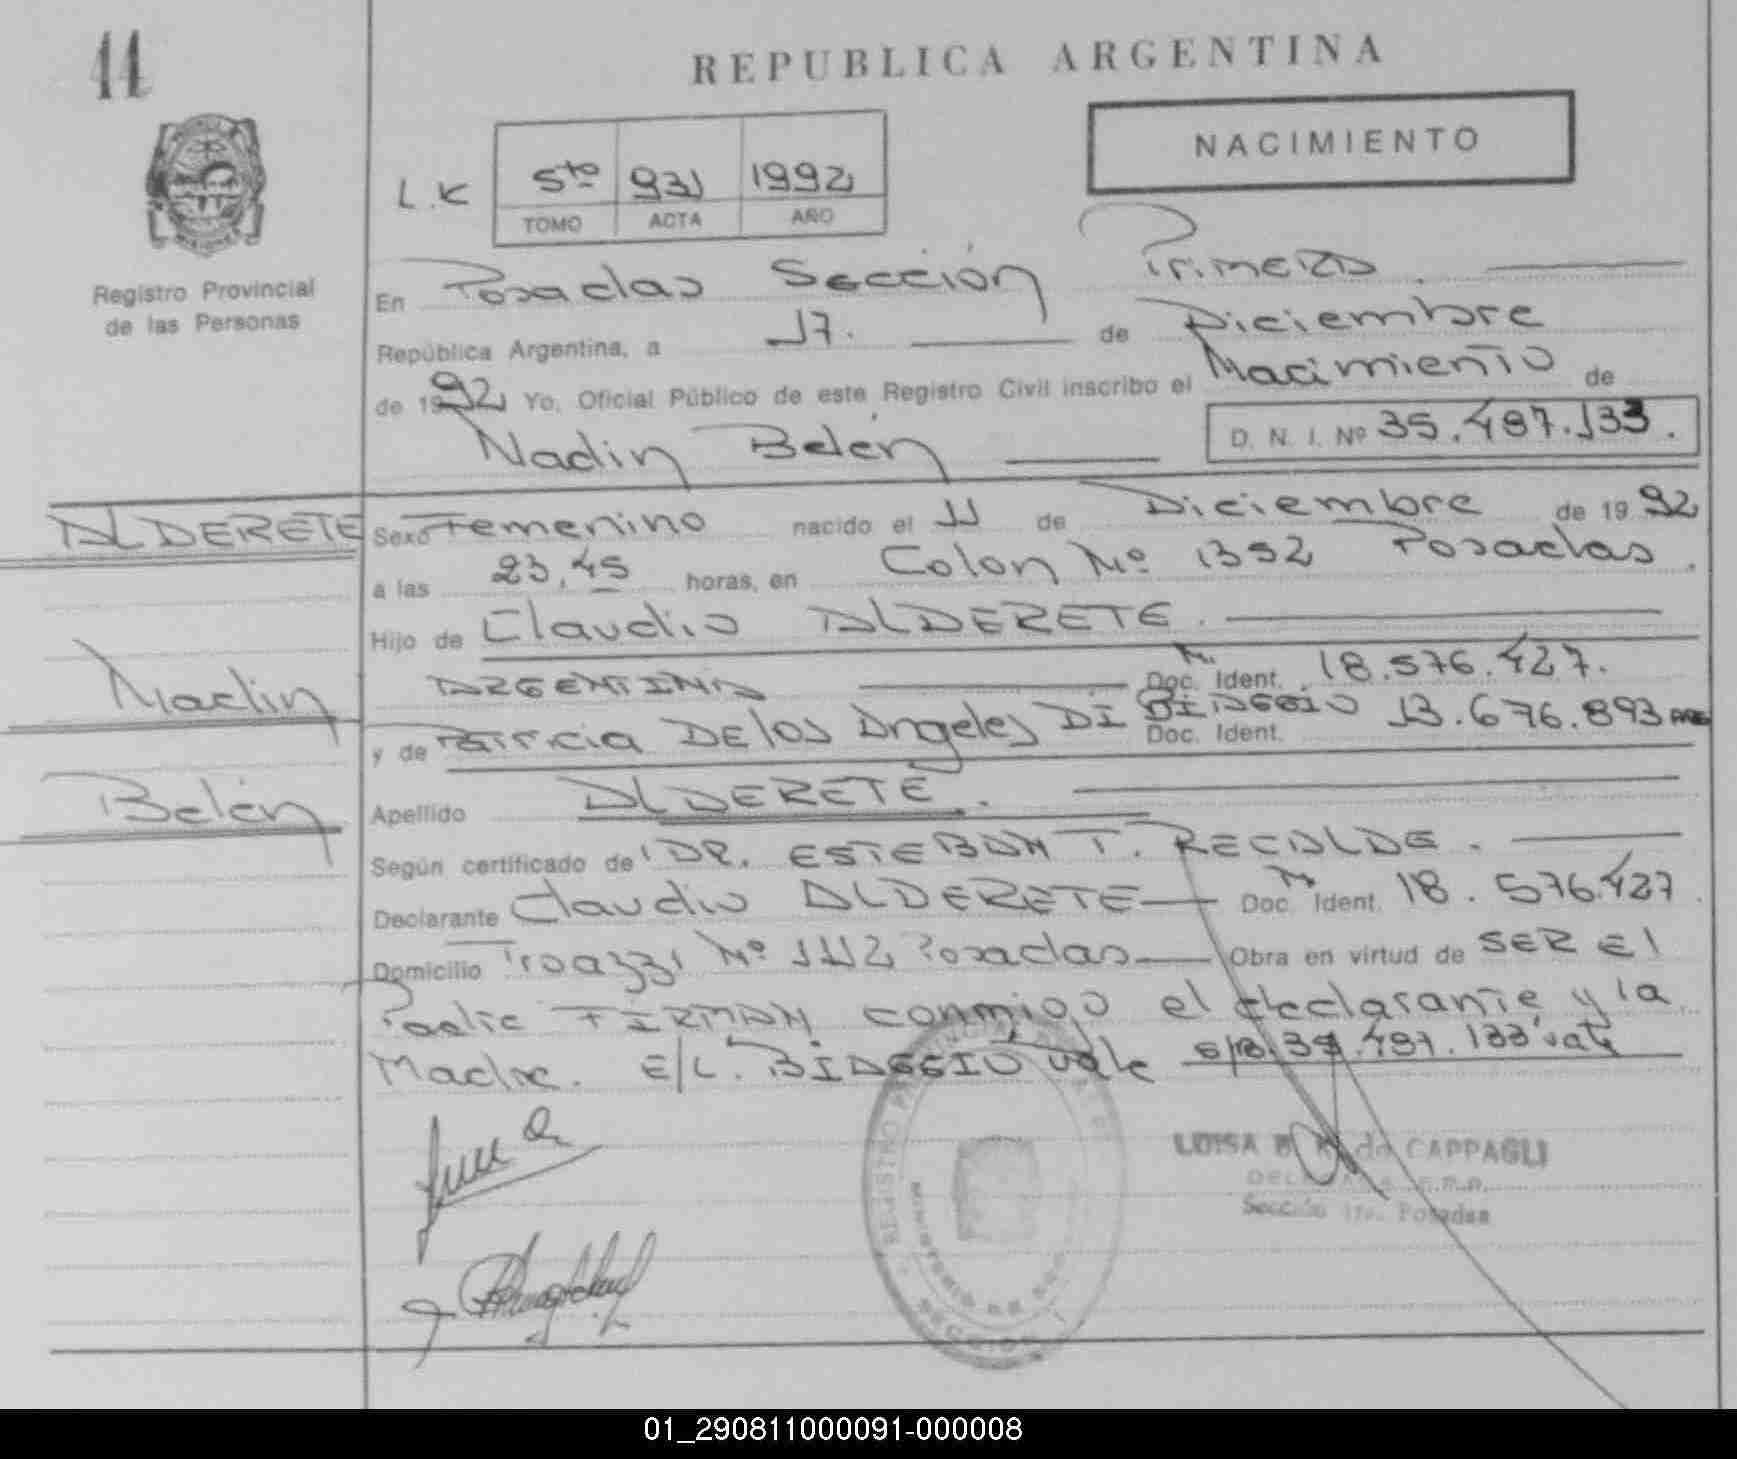 11
REPUBLICA ARGENTINA
NACIMIENTO
L.K 5to 931 1992
TOMO ACTA AÑO
Registro Provincial
de las Personas
En Posadas Sección Primera.
República Argentina, a 17. de Diciembre
de 1992 Yo, Oficial Público de este Registro Civil inscribo el Nacimiento de
Nadin Belén D. N. I. Nº 35.487.133.
ALDERETE
Nadin
Belén
Sexo Femenino nacido el 11 de Diciembre de 1992
a las 23,45 horas, en Colon Nº 1392 Posadas.
Hijo de Claudio ALDERETE.
ARGENTINA Doc. Ident. 18.576.427.
y de Patricia DE los Angeles DI BIAGGIO Doc. Ident. 13.676.893
Apellido ALDERETE.
Según certificado de DR. ESTEBAN T. RECALDE.
Declarante Claudio ALDERETE Doc. Ident. 18.576.427
Domicilio Nº 1112 Posadas Obra en virtud de SER El
Padre FIRMAN conmigo el declarante y la
Madre. E/L. BIAGGIO vale S/B. 487.133 vale
LUISA B de CAPPAGLI
Sección 1ra. Posadas
REGISTRO
MINISTERIO DE
SECCION 1
01_290811000091-000008